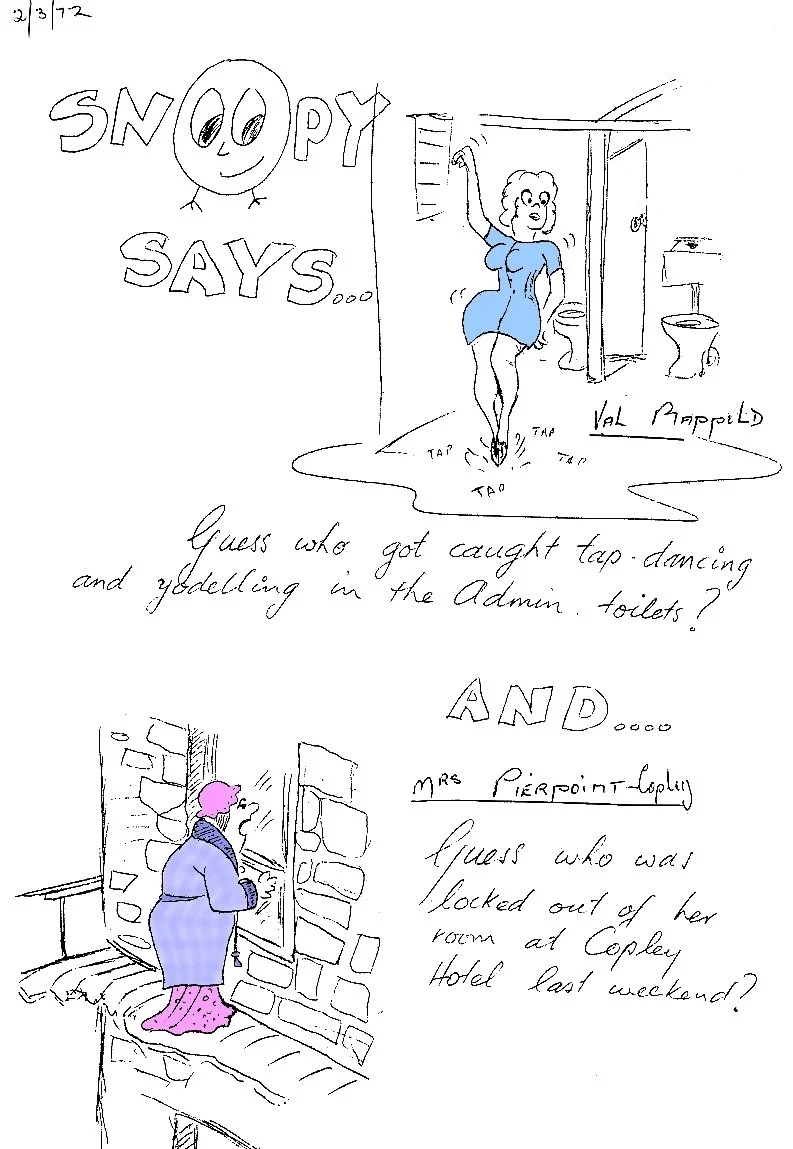 2/3/72
SNOOPY
SAYS...
TAP
TAP
TAP
TAP
VAL RAPPELD
Guess who got caught tap-dancing
and yodelling in the Admin. toilets?
AND....
MRS PIERPOINT-Copley
Guess who was
locked out of her
room at Copley
Hotel last weekend?